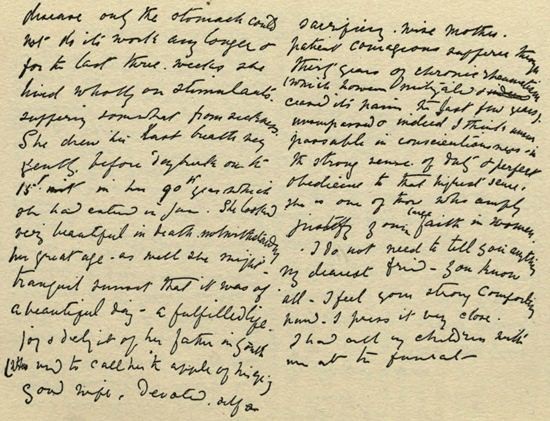 disease only the stomach could
not do its work any longer &
for the last three weeks she
lived wholly on stimulants.
suffering somewhat from sickness.
She drew her last breath very
gently before daybreak on the
15th inst in her 90th year which
she had entered in June. She looked
very beautiful in death notwithstanding
her great age - as well she might -
tranquil sunset that it was of
a beautiful day - a fulfilled life.
joy & delight of her father in youth
(who used to call her the apple of his eye)
good wife, Devoted, self
sacrificing, wise mother.
patient courageous sufferer through
thirty years of chronic rheumatism
(which however mitigated &
ceased its pain the last few years)
unsurpassed & indeed I think unsur-
passable in conscientiousness - in
the strong sense of duty & perfect
obedience to that highest sense.
she is one of those who amply
justify your large faith in women.
I do not need to tell you anything
my dearest friend - you know
all - I feel your strong comforting
hand. I press it very close.
I had all my children with
me at the funeral -